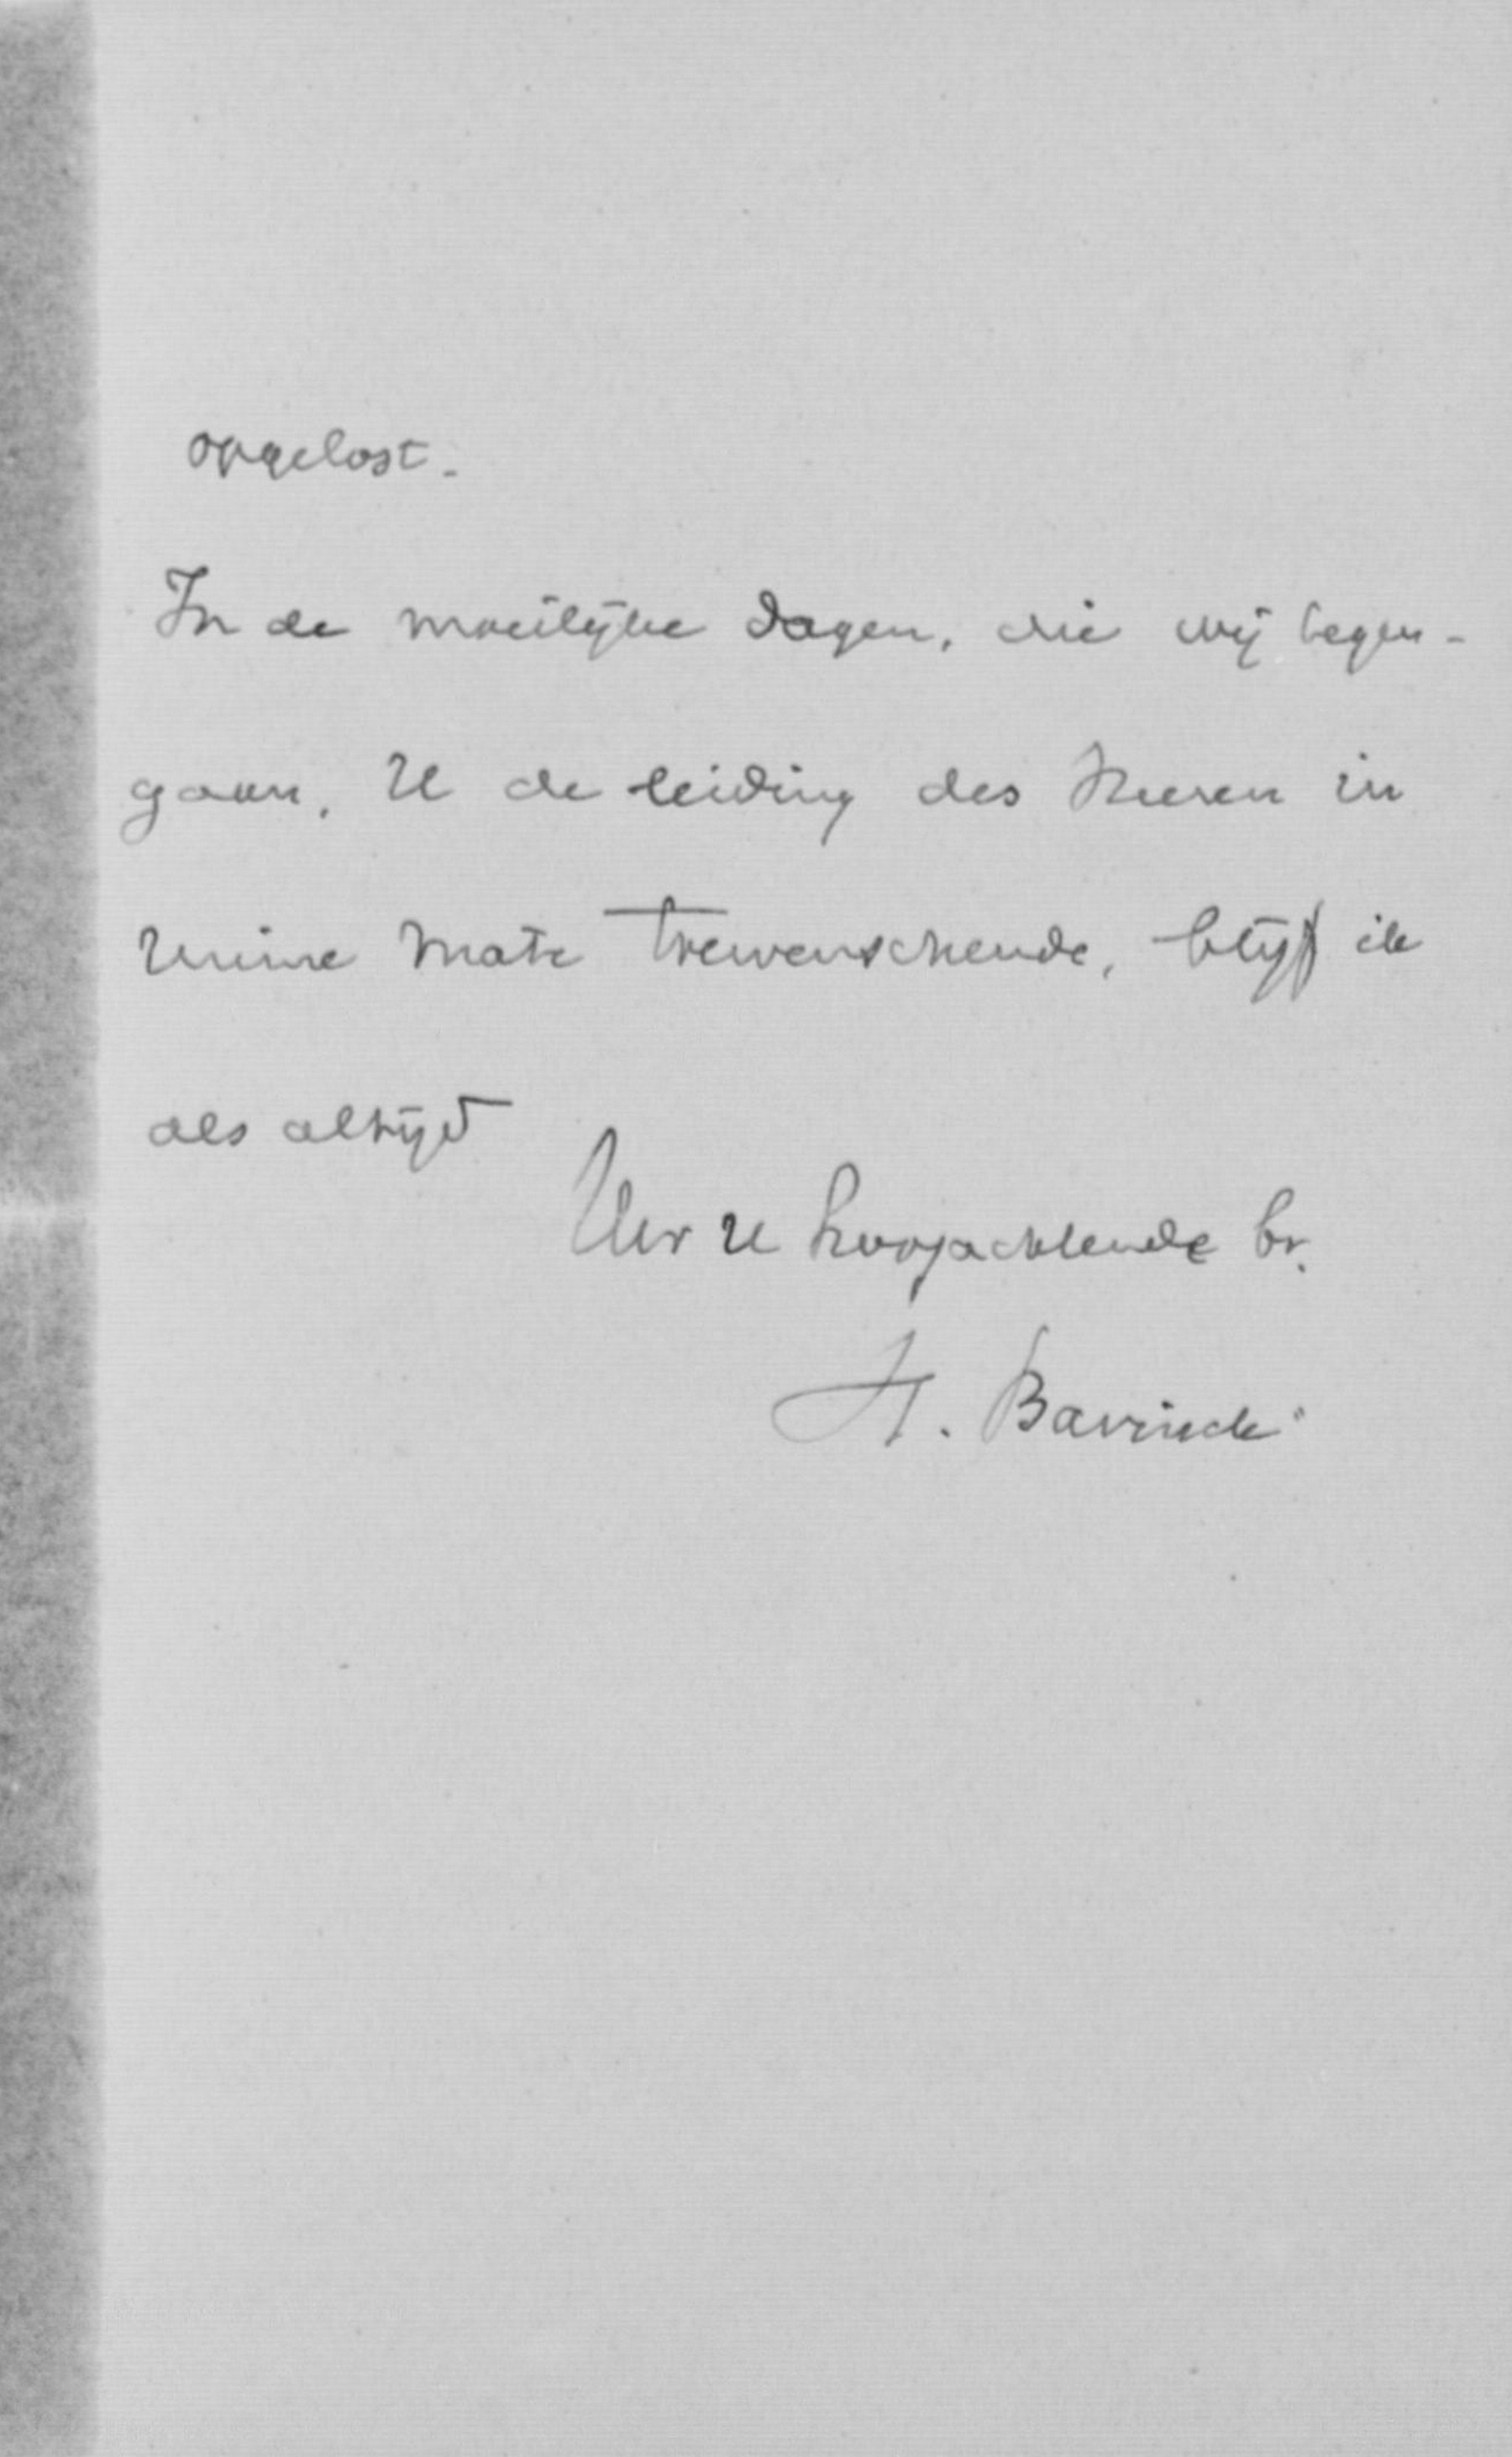 opgelost.
In de moeilijke dagen, die wij tegen-
gaan, U de leiding des Heeren in
ruime mate toewenschende, blijf ik
als altijd
Uw U hoogachtende br.
H. Bavinck